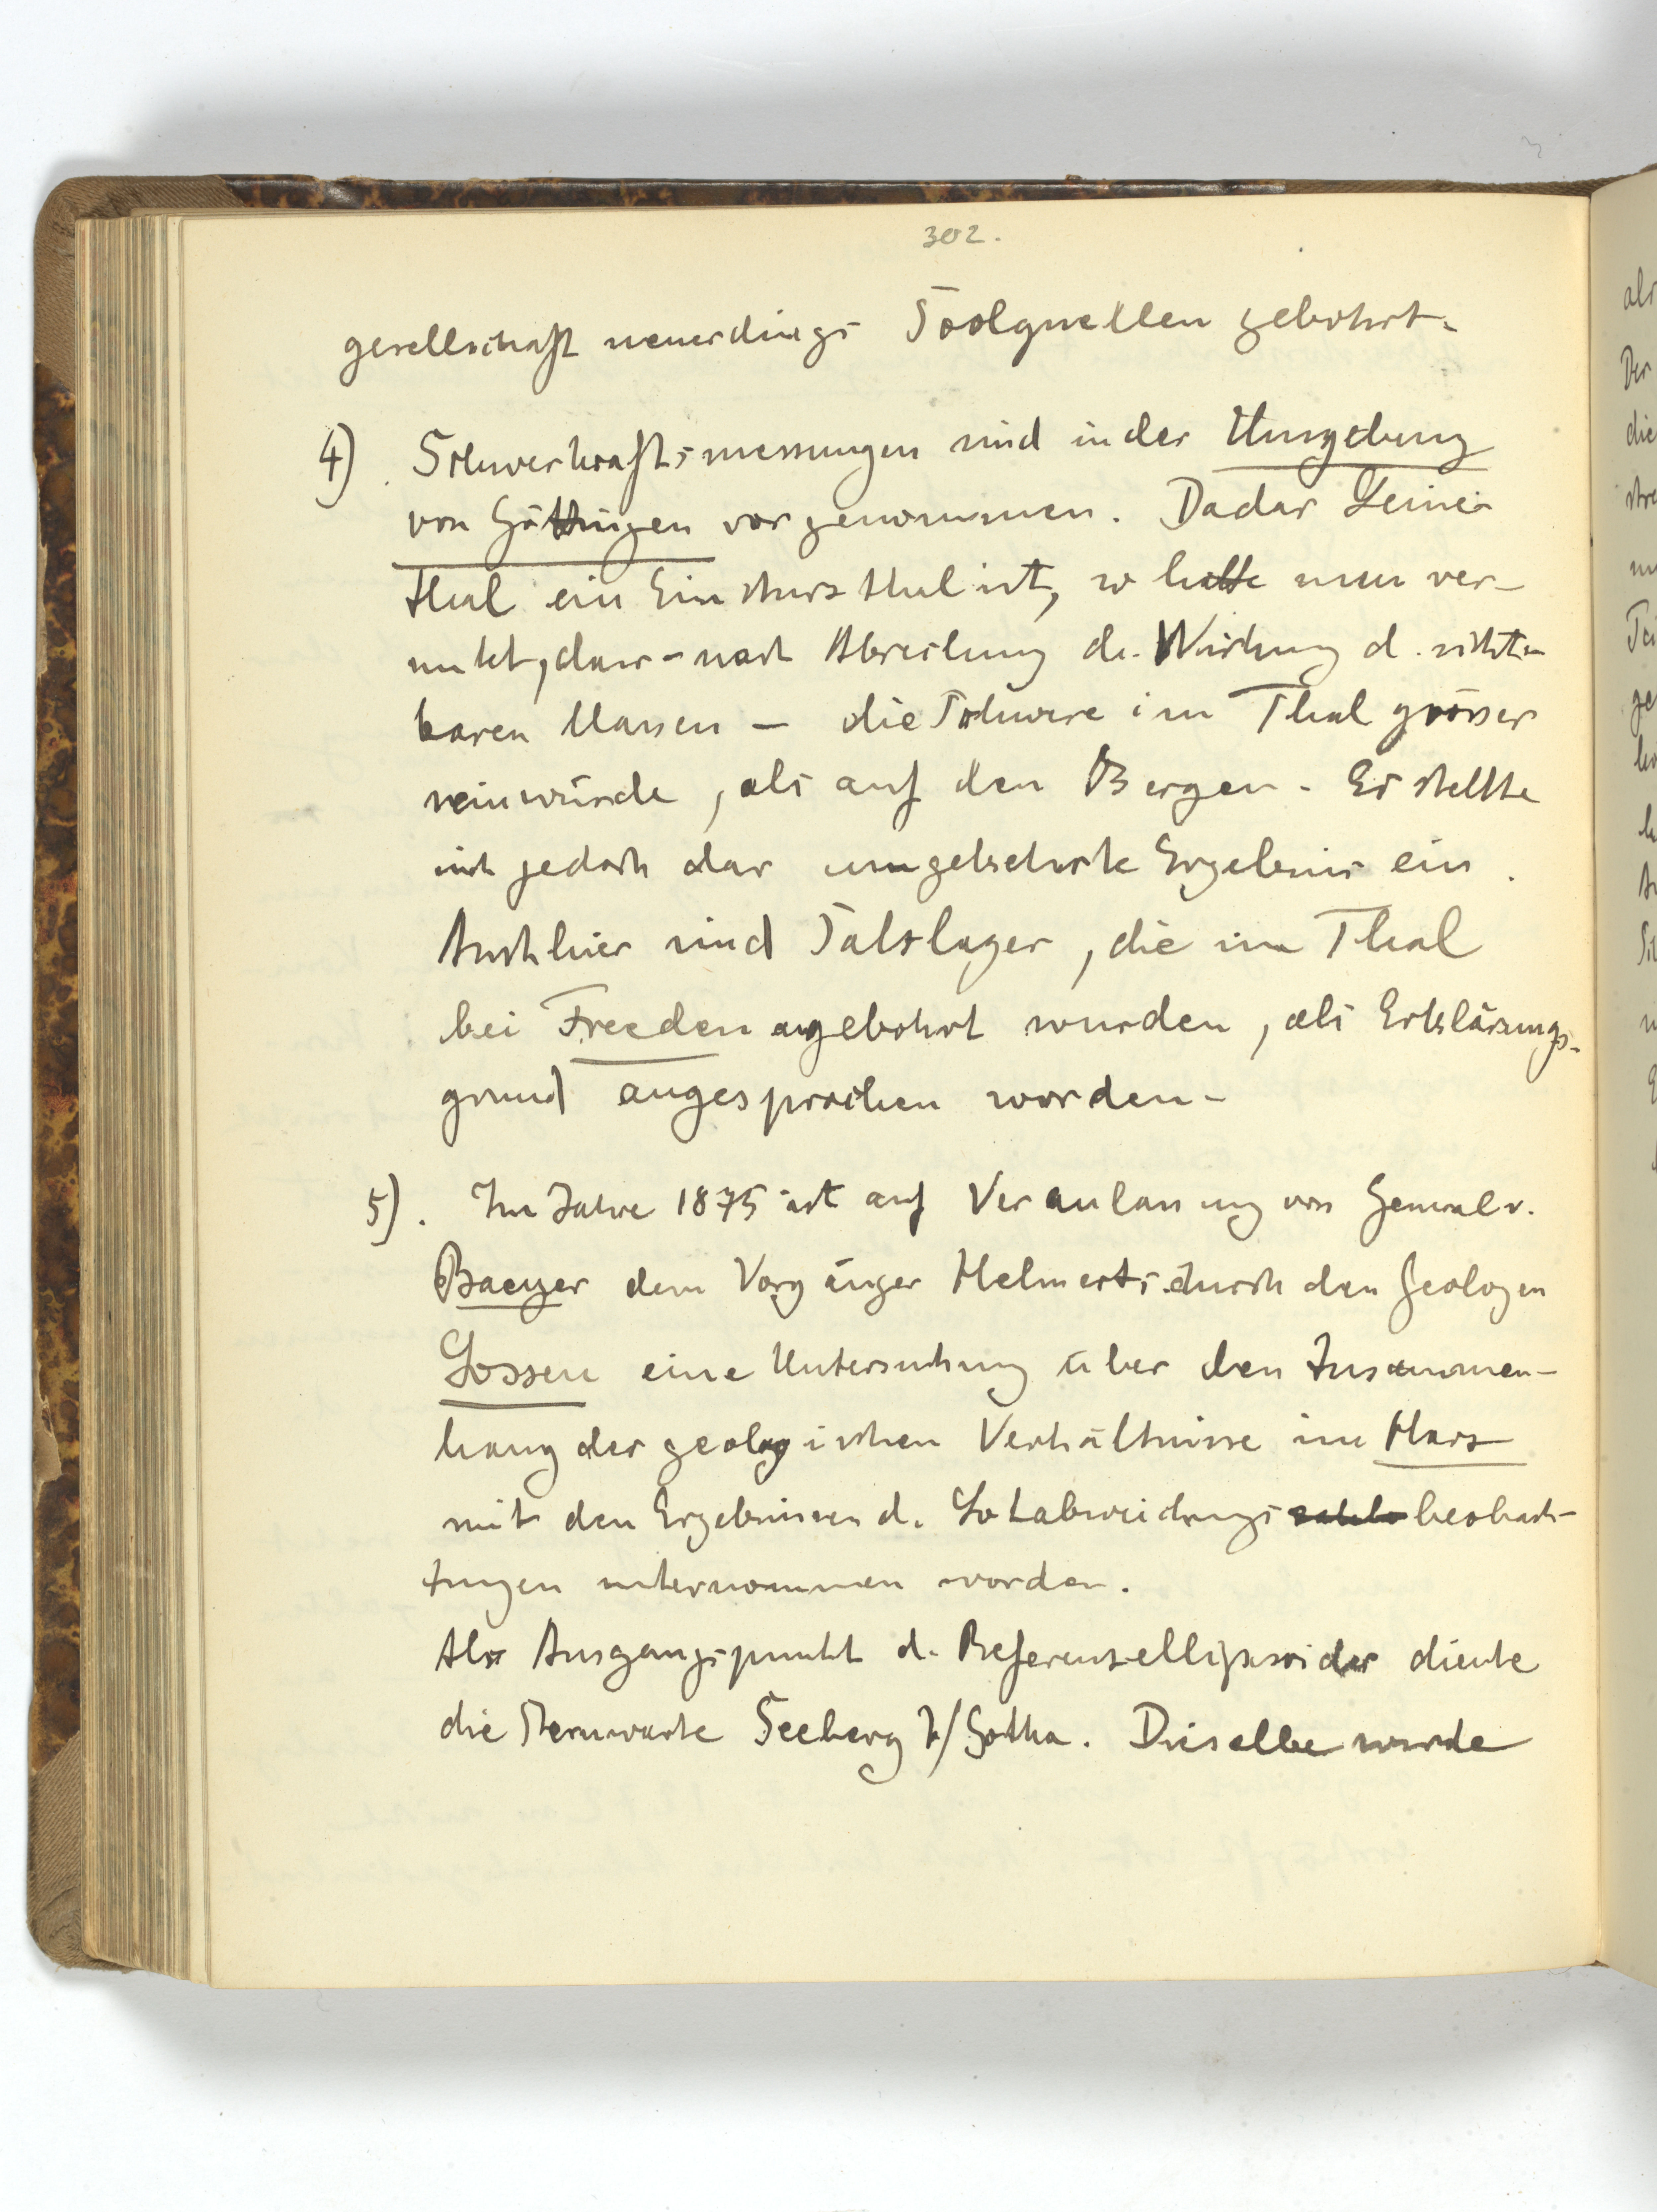 302.
gesellschaft neuerdings Soolquellen gebohrt.
4). Schwerkraftsmessungen sind in der Umgebung
von Göttingen vorgenommen. Da das Leine-
thal ein Einsturzthal ist, so hatte man ver-
mutet, dass – nach Abrechnung d. Wirkung d. sicht-
baren Massen – die Schwere im Thal grösser
sein würde, als auf den Bergen. Es stellte
sich jedoch das umgekehrte Ergebnis ein.
Auch hier sind Salzlager, die im Thal
bei Freeden angebohrt wurden, als Erklärungs-
grund angesprochen worden.
5). Im Jahre 1875 ist auf Veranlassung von General v.
Baeyer dem Vorgänger Helmerts durch den Geologen
Lossen eine Untersuchung über den Zusammen-
hang der geologischen Verhältnisse im Harz
mit den Ergebnissen d. Lotabweichungs beobach-
tungen unternommen worden.
Als Ausgangspunkt d. Referenzellipsoides diente
die Sternwarte Seeberg b/Gotha. Dieselbe wurde
als
Der
die